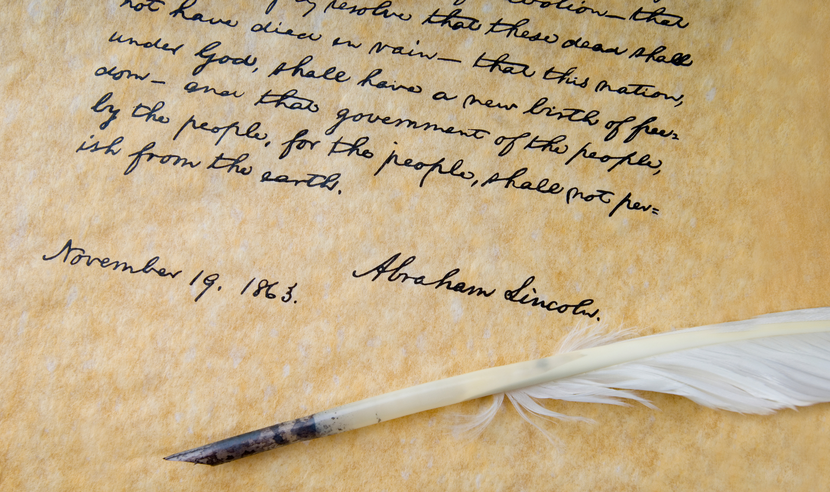 resolve that these dead shall
not have died in vain— that this nation,
under God, shall have a new birth of free=
dom— and that government of the people,
by the people, for the people, shall not per=
ish from the earth.
November 19. 1863.
Abraham Lincoln.